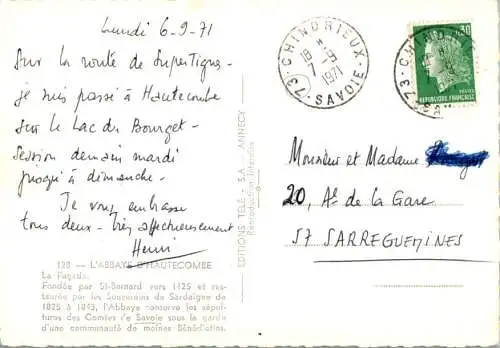 Lundi 6-9-71
Sur la route de SuperTignes -
je suis passé à Hautecombe
sur le Lac du Bourget -
Session demain mardi
jusqu'à dimanche -
Je vous embrasse
tous deux - très affectueusement
Henri
128 — L'ABBAYE D'HAUTECOMBE
La Façade.
Fondée par St-Bernard vers 1125 et res-
taurée par les Souverains de Sardaigne de
1825 à 1843, l'Abbaye conserve les sépul-
tures des Comtes de Savoie sous la garde
d'une communauté de moines Bénédictins.
EDITIONS TELE - S.A. - ANNECY
Reproduction Interdite
73 - CHINDRIEUX
18 H
7 - 9
1971
SAVOIE
0,30
REPUBLIQUE FRANÇAISE
POSTES
Monsieur et Madame
20, Av. de la Gare
57 SARREGUEMINES